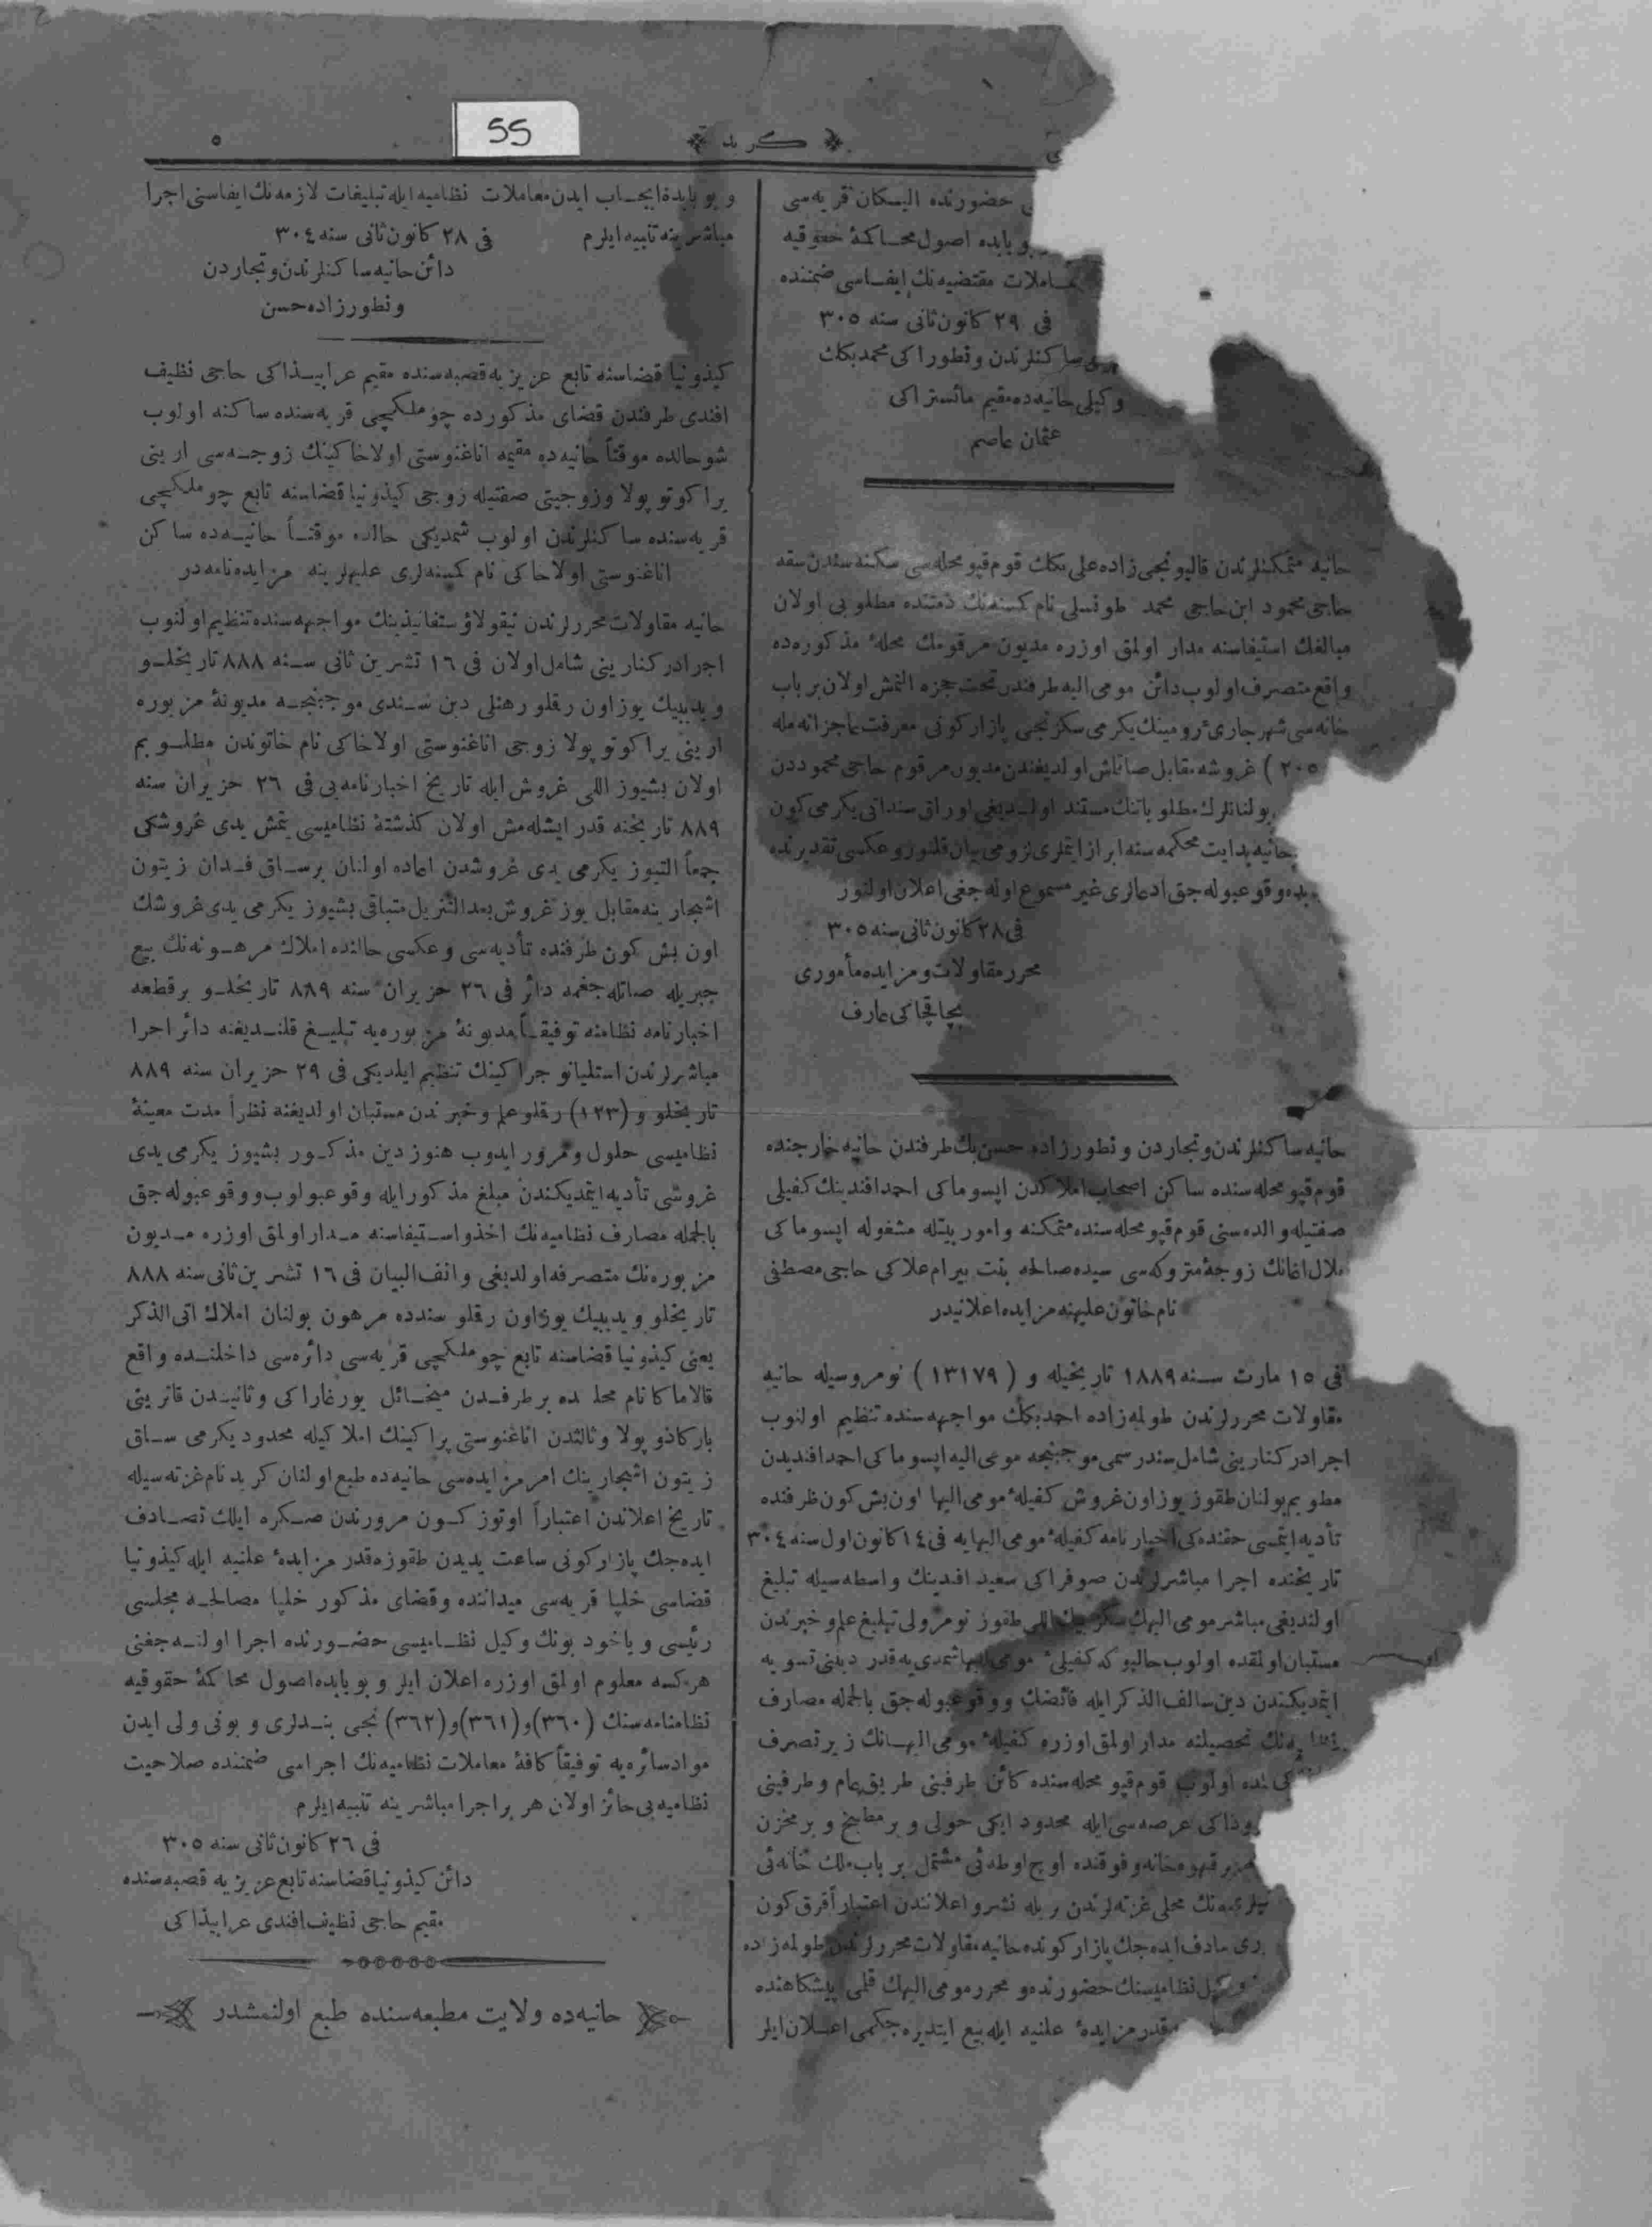 كريد
٥
55
حضورنده اليسكان قريه‌سى
و بابده اصول محاكمهٔ حقوقيه
معاملات مقتضيه‌نك ايفاسى ضمننده
فى ٢٩ كانون ثانى سنه ٣٠٥
ساكنلرندن ونطوراكى محمد بكك
وكيلى حانيه‌ده مقيم مانستراكى
عثمان عاصم
حانيه متمكنلرندن قاليونجى زاده على بكك قوم قپو محله‌سى سكنه‌سندن سقه
حاجى محمود ابن حاجى محمد طونسلى نام كسنه‌نك ذمتنده مطلوبى اولان
مبالغك استيفاسنه مدار اولمق اوزره مديون مرقومك محلهٔ مذكوره‌ده
واقع متصرف اولوب دائن مومى اليه طرفندن تحت حجزه النمش اولان بر باب
خانه‌سى شهر جارئ رومينك يكرمى سكزنجى پازار كونى معرفت عاجزانه‌مله
٢٠٥ ) غروشه مقابل صاتلش اولديغندن مديون مرقوم حاجى محموددن
بولنانلرك مطلوباتنك مستند اولديغى اوراق سنداتى يكرمى كون
حانيه بدايت محكمه‌سنه ابراز ايتملرى لزومى بيان قلنور و عكسى تقديرنده
وقوعبوله‌جق ادعالرى غير مسموع اوله‌جغى اعلان اولنور
فى ٢٨ كانون ثانى سنه ٣٠٥
محرر مقاولات و مزايده مأمورى
بچاقچاكى عارف
حانيه ساكنلرندن و تجاردن ونطورزاده حسن بك طرفندن حانيه خارجنده
قوم قپو محله‌سنده ساكن اصحاب املاكدن اپسوماكى احمد افندينك كفيلى
صفتيله والده‌سنى قوم قپو محله‌سنده متمكنه و امور بيتيله مشغوله اپسوماكى
بلال اغانك زوجهٔ متروكه‌سى سيده صالحه بنت بيرام علاكى حاجى مصطفى
نام خاتون عليهنه مزايده اعلانيدر
فى ١٥ مارت سنه ١٨٨٩ تاريخيله و ( ١٣١٧٩ ) نومروسيله حانيه
مقاولات محررلرندن طولمه‌زاده احمد بكك مواجهه‌سنده تنظيم اولنوب
اجرا دركنارينى شامل سندرسمى موجبنجه مومى اليه اپسوماكى احمد افنديدن
مطلوبم بولنان طقوز يوز اون غروش كفيلهٔ مومى اليها اون بش كون ظرفنده
تأديه ايتمسى حقنده‌كى اخبارنامه كفيلهٔ مومى اليهايه فى ١٤ كانون اول سنه ٣٠٤
تاريخنده اجرا مباشرلرندن صوفراكى سعيد افندينك واسطه‌سيله تبليغ
اولنديغى مباشر مومى اليهك سكز بيك اللى طقوز نومرولى تبليغ علم و خبرندن
مستبان اولمقده اولوب حالبوكه كفيلهٔ مومى اليها شمدى‌يه قدر دينى تسويه
ايتمديكندن دين سالف الذكر ايله فائضك و وقوعبوله‌جق بالجمله مصارف
نظاميه‌نك تحصيلنه مدار اولمق اوزره كفيلهٔ مومى اليهانك زير تصرف
اولوب قوم قپو محله‌سنده كائن طرفينى طريق عام و طرفينى
عرصه‌سى ايله محدود ايكى حولى و بر مطبخ و بر مخزن
بر قهوه‌خانه و فوقنده اوچ اوطه‌ئى مشتمل بر باب ملك خانه‌ئى
محلى غزته‌لرندن بريله نشر و اعلانندن اعتباراً قرق كون
ايده‌جك پازار كونده حانيه مقاولات محررلرندن طولمه‌زاده
وكيل نظاميسنك حضورنده و محرر مومى اليهك قلمى پيشكاهنده
قدر مزايدهٔ علنيه ايله بيع ايتديره‌جكمى اعلان ايلر
و بو بابده ايجاب ايدن معاملات نظاميه ايله تبليغات لازمه‌نك ايفاسنى اجرا
مباشرينه تنبيه ايلرم فى ٢٨ كانون ثانى سنه ٣٠٤
دائن حانيه ساكنلرندن و تجاردن
ونطورزاده حسن
كيذونيا قضاسنه تابع عزيزيه قصبه‌سنده مقيم عرابيذاكى حاجى نظيف
افندى طرفندن قضاى مذكورده چوملكجى قريه‌سنده ساكنه اولوب
شو حالده موقتاً حانيه‌ده مقيمه اناغنوستى اولاخاكينك زوجه‌سى ارينى
براكوتوپولا و زوجيتى صفتيله زوجى كيذونيا قضاسنه تابع چوملكجى
قريه‌سنده ساكنلرندن اولوب شمديكى حالده موقتاً حانيه‌ده ساكن
اناغنوستى اولاخاكى نام كسنه‌لرى عليهلرينه مزايده‌نامه‌در
حانيه مقاولات محررلرندن نيقولاؤ ستفانيذينك مواجهه‌سنده تنظيم اولنوب
اجرا دركنارينى شامل اولان فى ١٦ تشرين ثانى سنه ٨٨٨ تاريخلو
و يديبيك يوز اون رقلو رهنلى دين سندى موجبنجه مديونهٔ مزبوره
ارينى براكوتوپولا زوجى اناغنوستى اولاخاكى نام خاتوندن مطلوبم
اولان بشيوز اللى غروش ايله تاريخ اخبارنامه‌يى فى ٢٦ حزيران سنه
٨٨٩ تاريخنه قدر ايشله‌مش اولان كذشتهٔ نظاميسى يتمش يدى غروشكى
جمعاً التيوز يكرمى يدى غروشدن اعاده اولنان برساق فدان زيتون
اشجارينه مقابل يوز غروش بعد التنزيل متباقى بشيوز يكرمى يدى غروشك
اون بش كون ظرفنده تأديه‌سى و عكسى حالنده املاك مرهونه‌نك بيع
جبريله صاتله‌جغمه دائر فى ٢٦ حزيران سنه ٨٨٩ تاريخلو برقطعه
اخبارنامه نظامنه توفيقاً مديونهٔ مزبوره‌يه تبليغ قلنديغنه دائر اجرا
مباشرلرندن استليانو جراكينك تنظيم ايلديكى فى ٢٩ حزيران سنه ٨٨٩
تاريخلو و (١٢٣) رقلو علم و خبرندن مستبان اولديغنه نظراً مدت معينهٔ
نظاميسى حلول و مرور ايدوب هنوز دين مذكور بشيوز يكرمى يدى
غروشى تأديه ايتمديكندن مبلغ مذكور ايله وقوعبولوب و وقوعبوله‌جق
بالجمله مصارف نظاميه‌نك اخذ و استيفاسنه مدار اولمق اوزره مديون
مزبوره‌نك متصرفه اولديغى و انف البيان فى ١٦ تشرين ثانى سنه ٨٨٨
تاريخلو و يديبيك يوز اون رقلو سندده مرهون بولنان املاك اتى الذكر
يعنى كيذونيا قضاسنه تابع چوملكجى قريه‌سى دائره‌سى داخلنده واقع
قالاماكا نام محلده بر طرفدن ميخائل يورغاراكى و ثانيدن قاترينى
باركاذوپولا و ثالثدن اناغنوستى پراكينك املاكيله محدود يكرمى ساق
زيتون اشجارينك امر مزايده‌سى حانيه‌ده طبع اولنان كريد نام غزته‌سيله
تاريخ اعلاندن اعتباراً اوتوز كون مرورندن صكره ايلك تصادف
ايده‌جك پازار كونى ساعت يديدن طقوزه قدر مزايدهٔ علنيه ايله كيذونيا
قضاسى خلپا قريه‌سى ميداننده و قضاى مذكور خلپا مصالحه مجلسى
رئيسى و ياخود بونك وكيل نظاميسى حضورنده اجرا اولنه‌جغنى
هر كسه معلوم اولمق اوزره اعلان ايلر و بو بابده اصول محاكمهٔ حقوقيه
نظامنامه‌سنك (٣٦٠) و (٣٦١) و (٣٦٢) نجى بندلرى و بونى ولى ايدن
مواد سائره‌يه توفيقاً كافهٔ معاملات نظاميه‌نك اجراسى ضمننده صلاحيت
نظاميه‌يى حائز اولان هر بر اجرا مباشرينه تنبيه ايلرم
فى ٢٦ كانون ثانى سنه ٣٠٥
دائن كيذونيا قضاسنه تابع عزيزيه قصبه‌سنده
مقيم حاجى نظيف افندى عرابيذاكى
حانيه‌ده ولايت مطبعه‌سنده طبع اولنمشدر